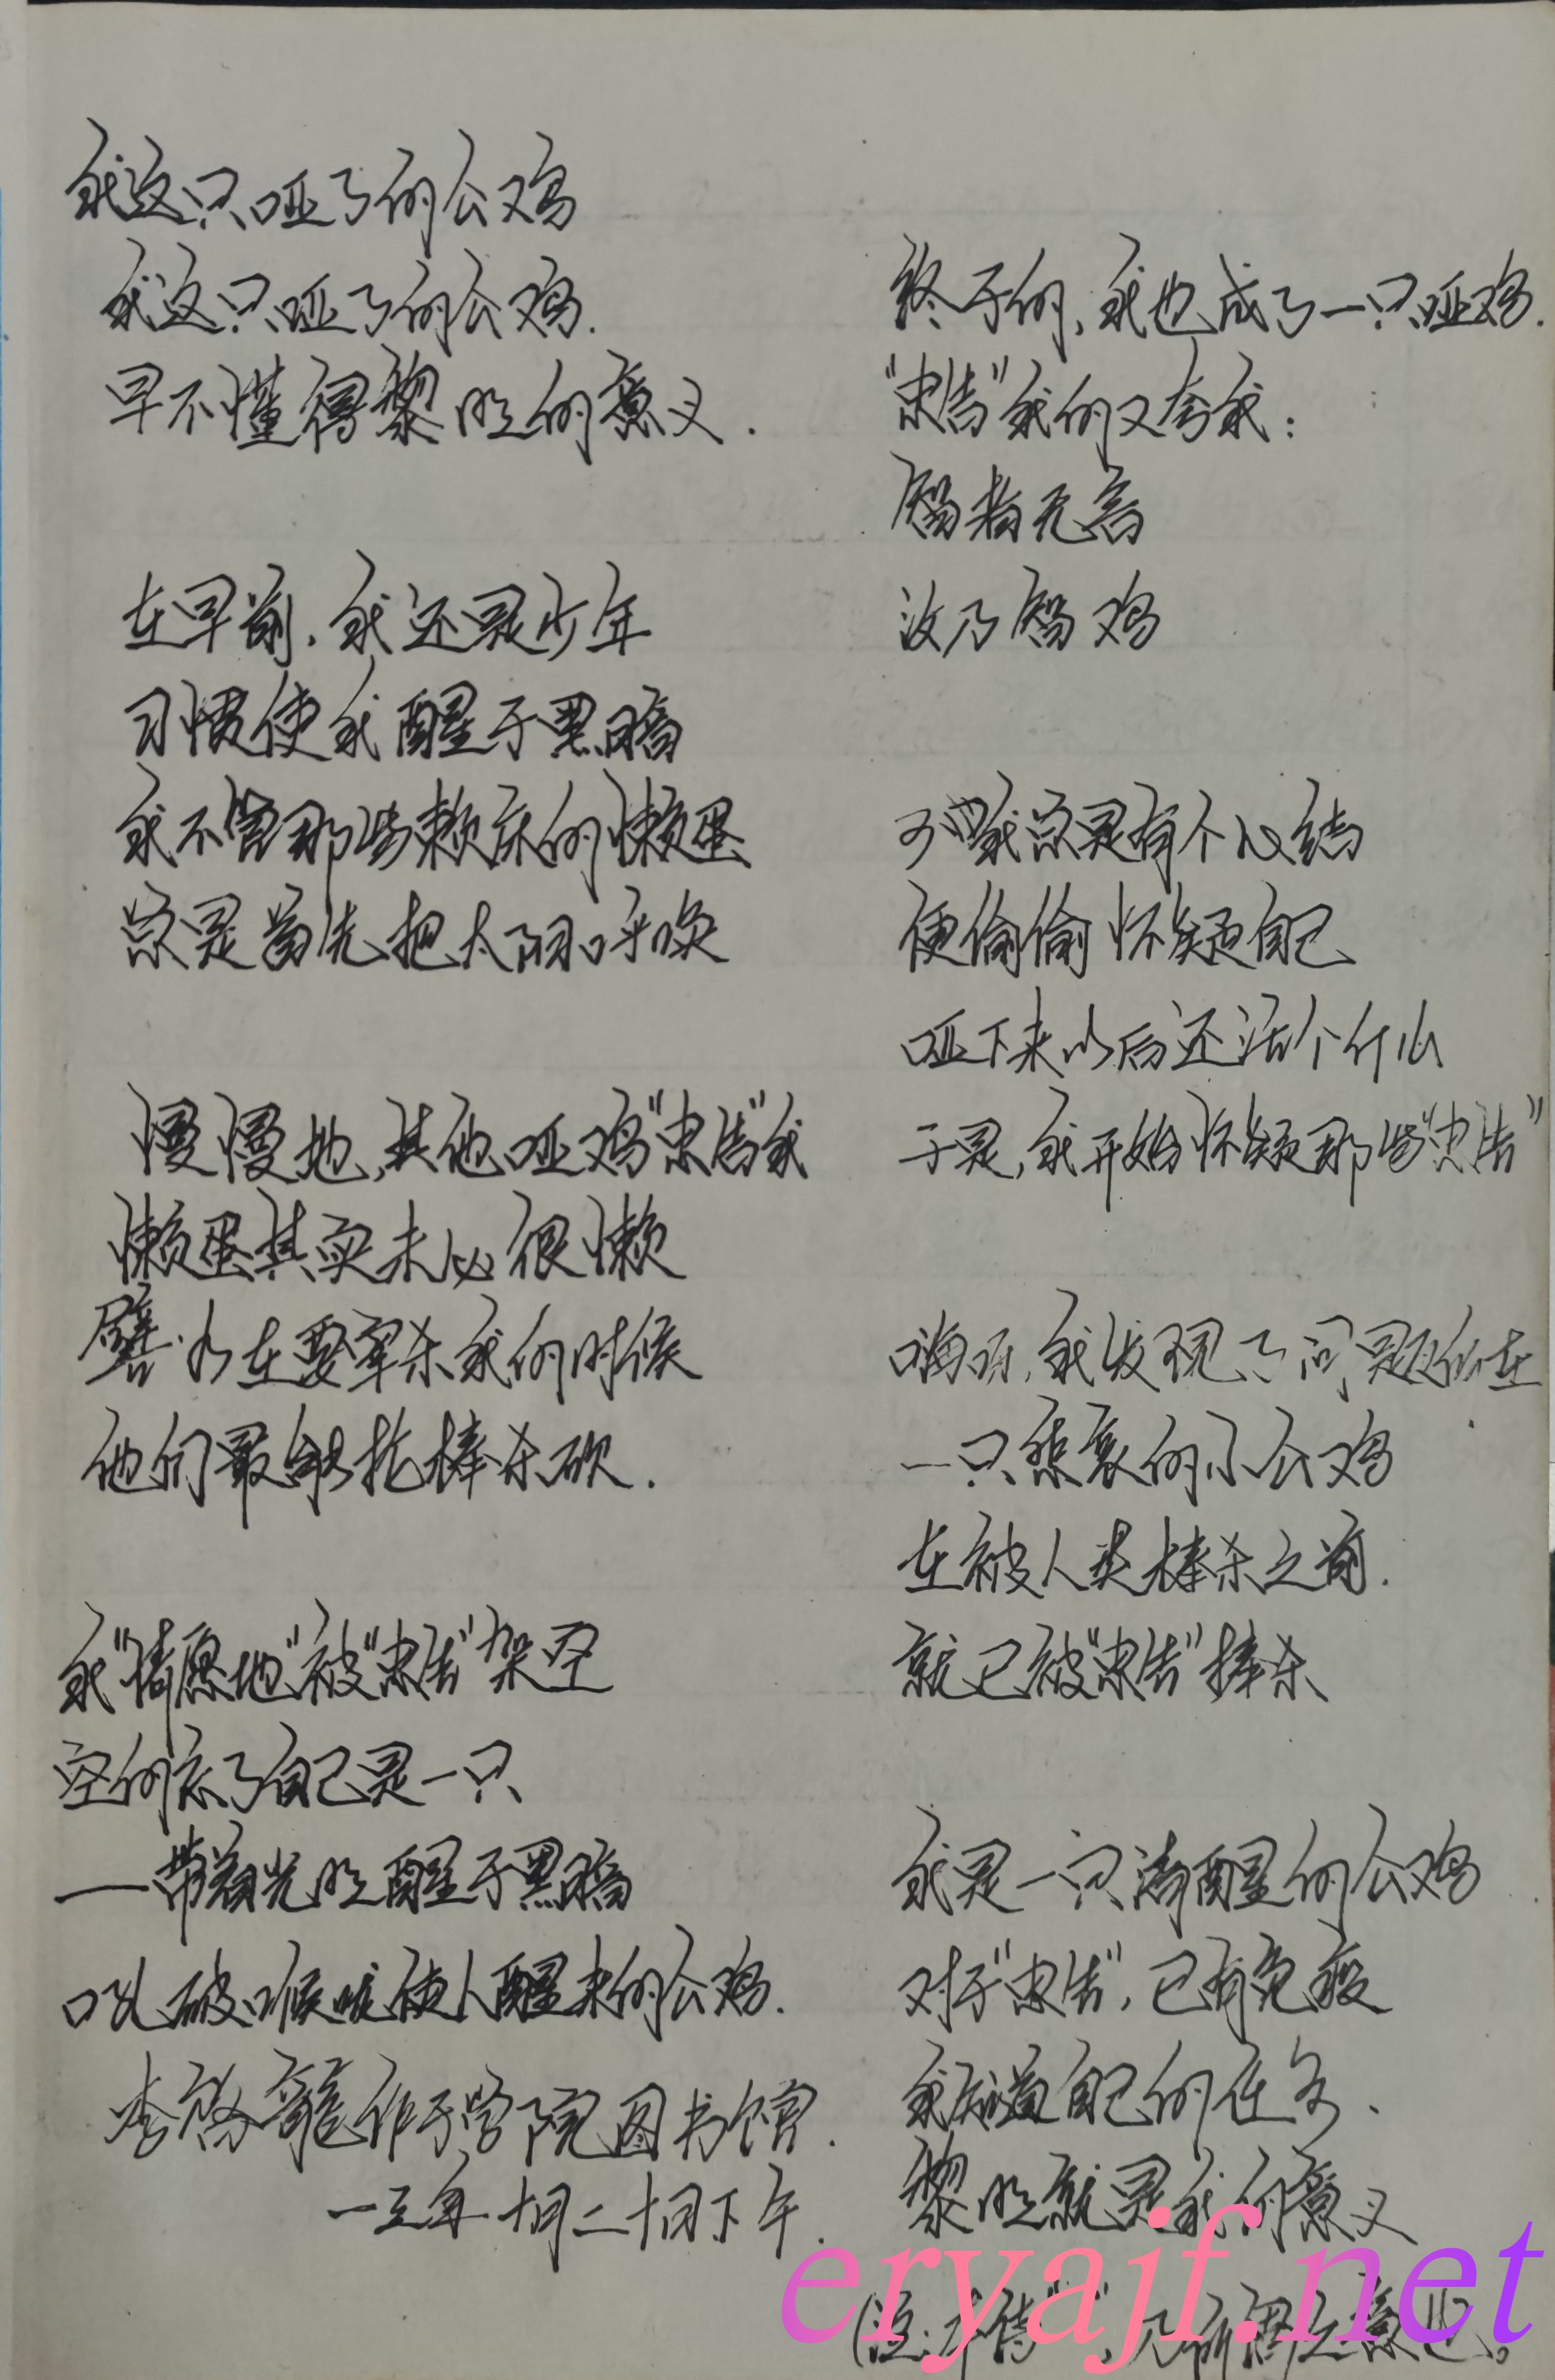 我这只哑了的公鸡
我这只哑了的公鸡.
早不懂得黎明的意义.
在早前,我还是少年
习惯使我醒于黑暗
我不管那些赖床的懒蛋
总是首先把太阳呼唤
慢慢地,其他哑鸡“忠告”我
懒蛋其实未必很懒
譬如在要宰杀我的时候
他们最能抡棒杀砍.
我“情愿地”被“忠告”架空
空的忘了自己是一只
—带着光明醒于黑暗
吼破喉咙使人醒来的公鸡.
李啓龍作于学院图书馆.
一三年十月二十日下午.
终于的,我也成了一只哑鸡.
“忠告”我的又夸我:
智者无言
汝乃智鸡
可我总是有个心结
便偷偷怀疑自己
哑下来以后还活个什么
于是,我开始怀疑那些“忠告”
嗨呀,我发现了问题所在
一只悲哀的小公鸡
在被人类棒杀之前.
就已被“忠告”棒杀
我是一只清醒的公鸡
对于“忠告”,已有免疫
我知道自己的任务、
黎明就是我的意义
(注:本诗“ ”,乃所谓之意也。
eryajf.net